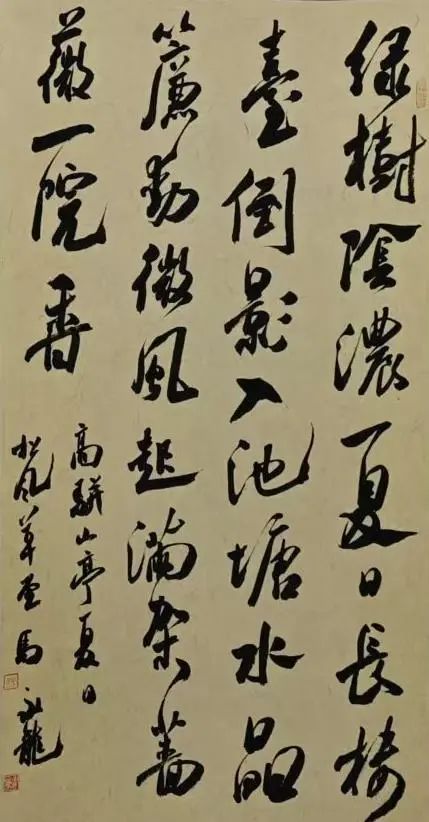 緑樹陰濃夏日長樓
臺倒影入池塘水晶
簾動微風起滿架薔
薇一院香
高駢山亭夏日
松風草堂馬永龍